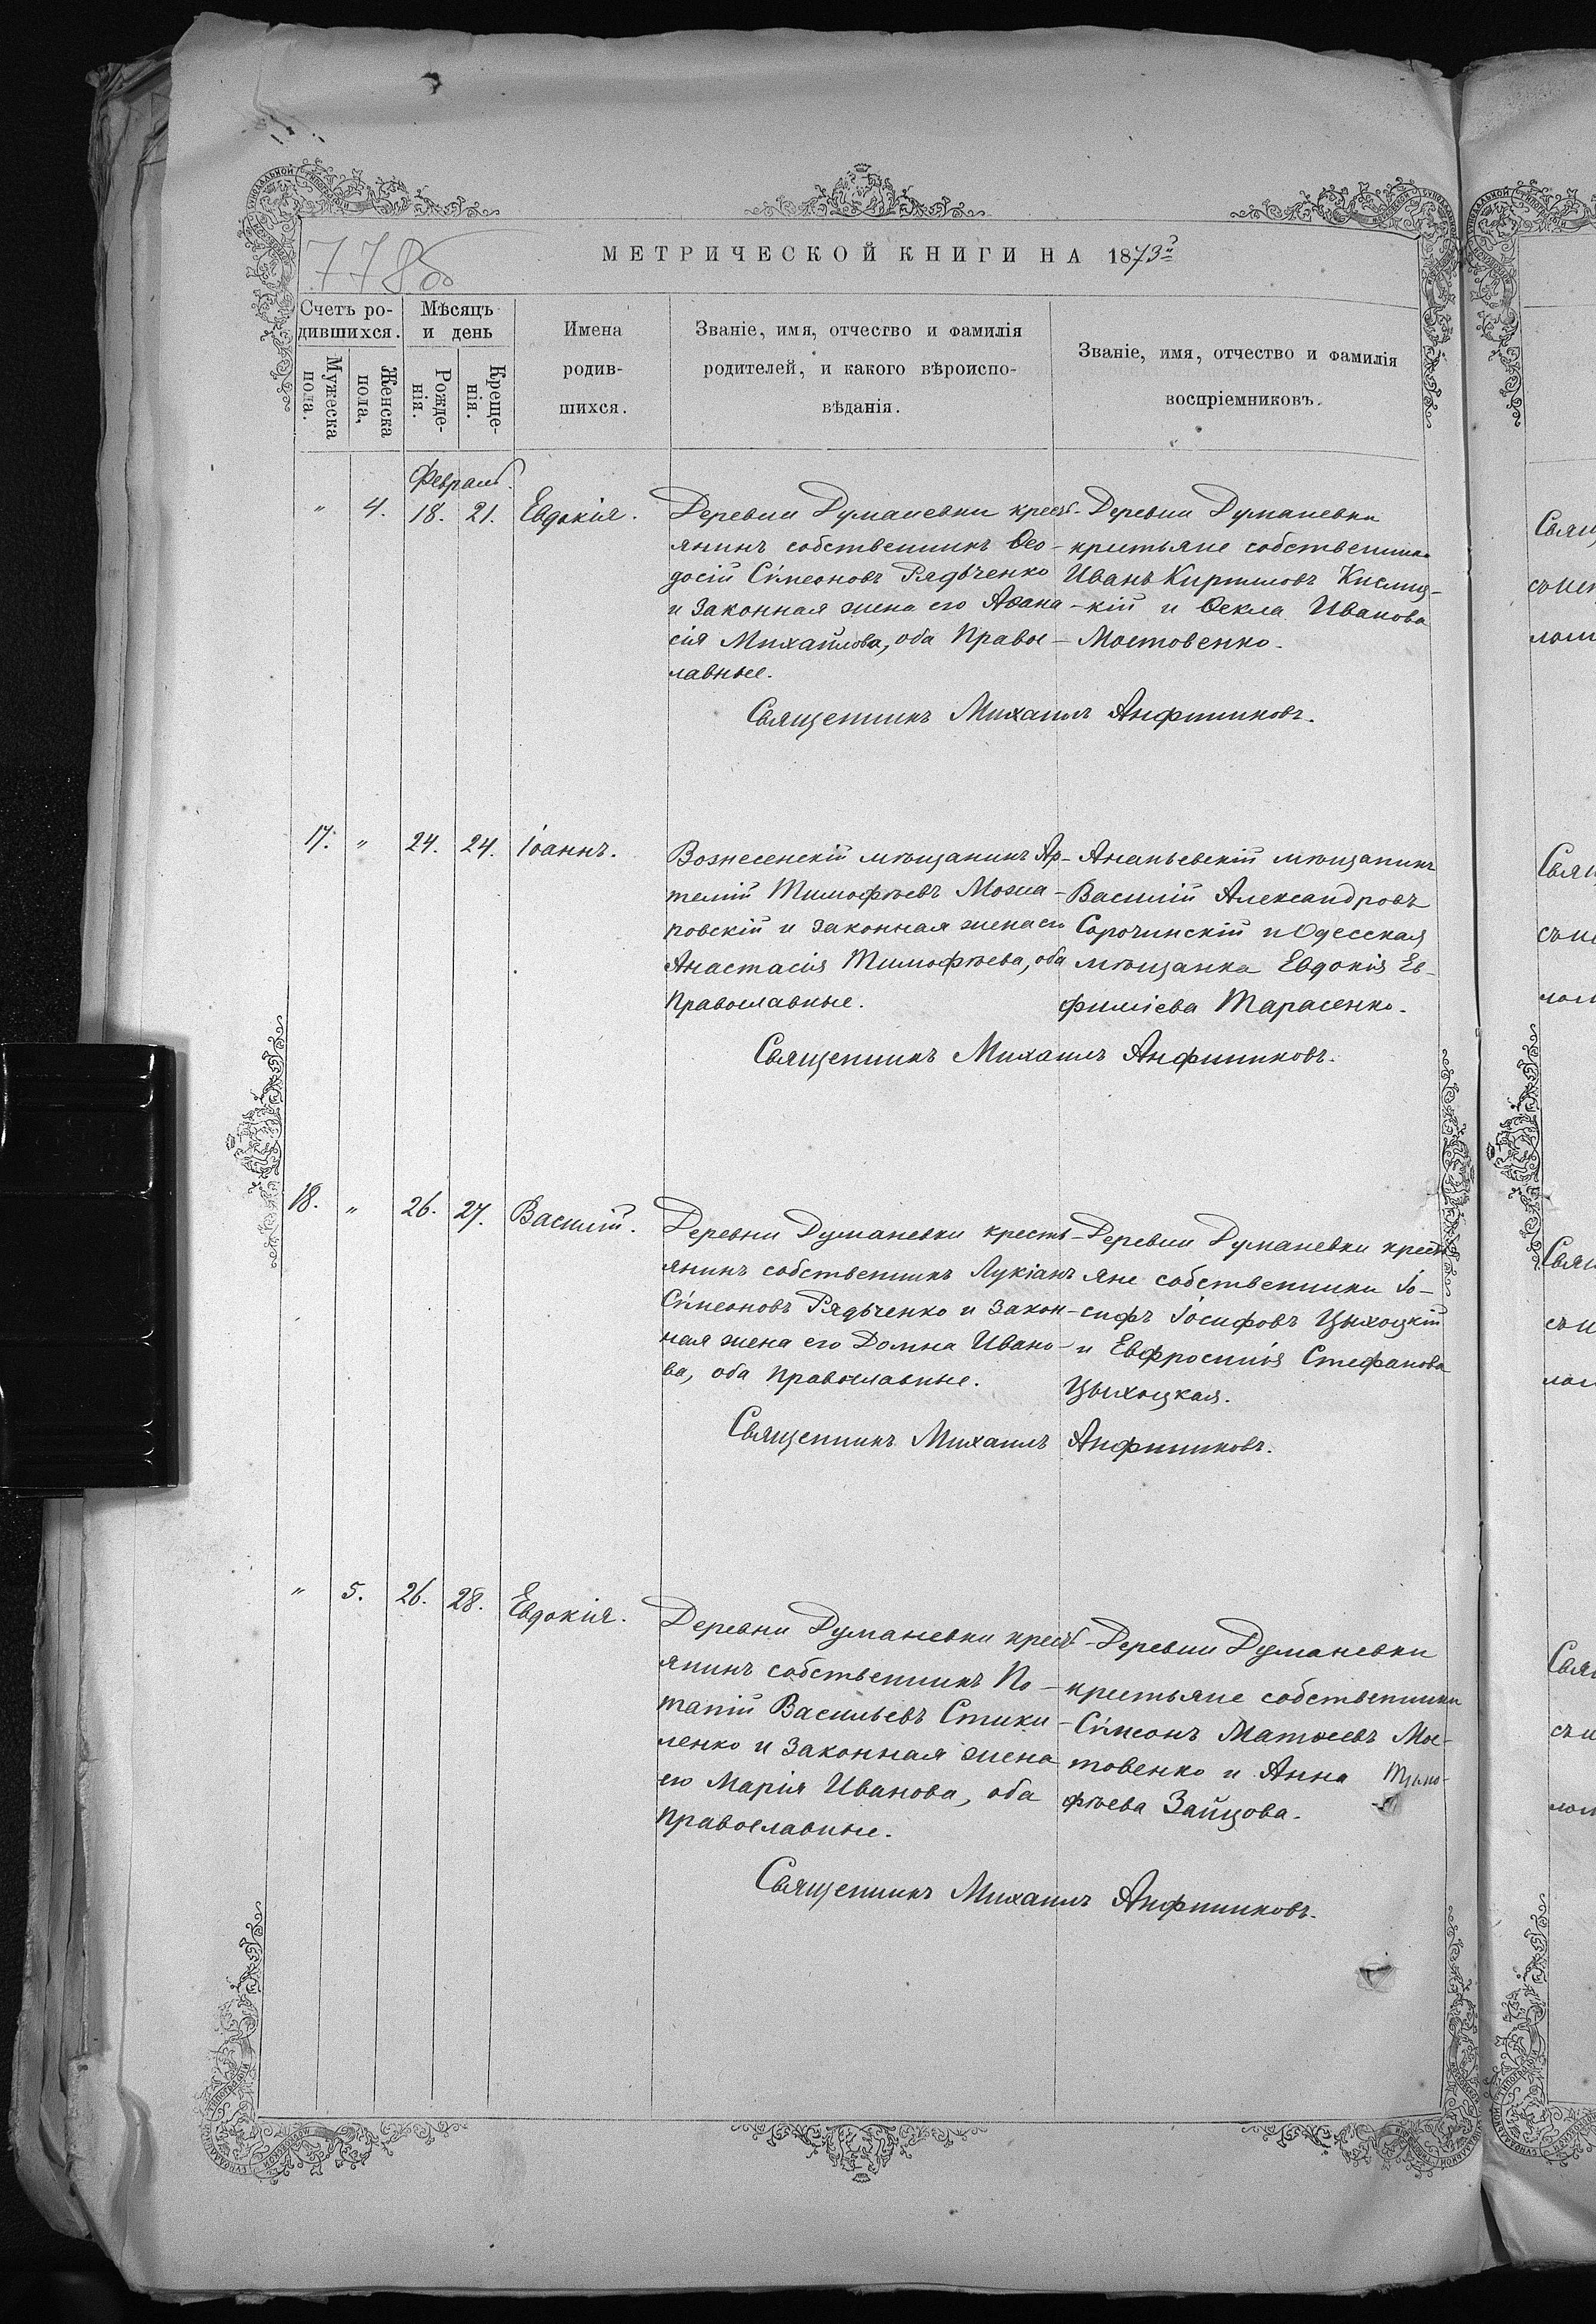 778об
МЕТРИЧЕСКОЙ КНИГИ НА 1873й
Счетъ ро-
дившихся.
Мужеска
пола.
Женска
пола,
Мѣсяцъ
и день
Рожде-
нія.
Креще-
нія.
Имена
родив-
шихся.
Званіе, имя, отчество и фамилія
родителей, и какого вѣроиспо-
вѣданія.
Званіе, имя, отчество и фамилія
воспріемниковъ.
Феврал.
" 4. 18. 21. Евдокія.
Деревни Думаневки крест-
янинъ собственникъ Ѳео-
досій Сѵмеоновъ Рядьченко
и законная жена его Аѳана-
сія Михайлова, оба Правос-
лавные.
Деревни Думаневки
крестьяне собственники
Иванъ Кирилловъ Кислиц-
кій и Ѳекла Иванова
Мостовенко.
Священникъ Михаилъ Анфиниковъ.
17. " 24. 24. Іоаннъ.
Вознесенскій мѣщанинъ Ар-
темій Тимофѣевъ Можа-
ровскій и законная жена его
Анастасія Тимофѣева, оба
Православные.
Ананьевскій мѣщанинъ
Василій Александровъ
Сорочинскій и Одесская
мѣщанка Евдокія Ев-
фиміева Тарасенко.
Священникъ Михаилъ Анфиниковъ.
18. " 26. 27. Василій.
Деревни Думаневки кресть-
янинъ собственникъ Лукіанъ
Сѵмеоновъ Рядьченко и закон-
ная жена его Домна Ивано-
ва, оба православные.
Деревни Думаневки кресть-
яне собственники Іо-
сифъ Іосифовъ Цыхоцкій
и Евфросинія Стефанова
Цыхоцкая.
Священникъ Михаилъ Анфиниковъ.
" 5. 26. 28. Евдокія.
Деревни Думаневки крест-
янинъ собственникъ По-
тапій Васильевъ Стики-
ленко и законная жена
его Марія Иванова, оба
православные.
Деревни Думаневки
крестьяне собственники
Сѵмеонъ Матѳеевъ Мос-
товенко и Анна Тимо-
фѣева Зайцова.
Священникъ Михаилъ Анфиниковъ.